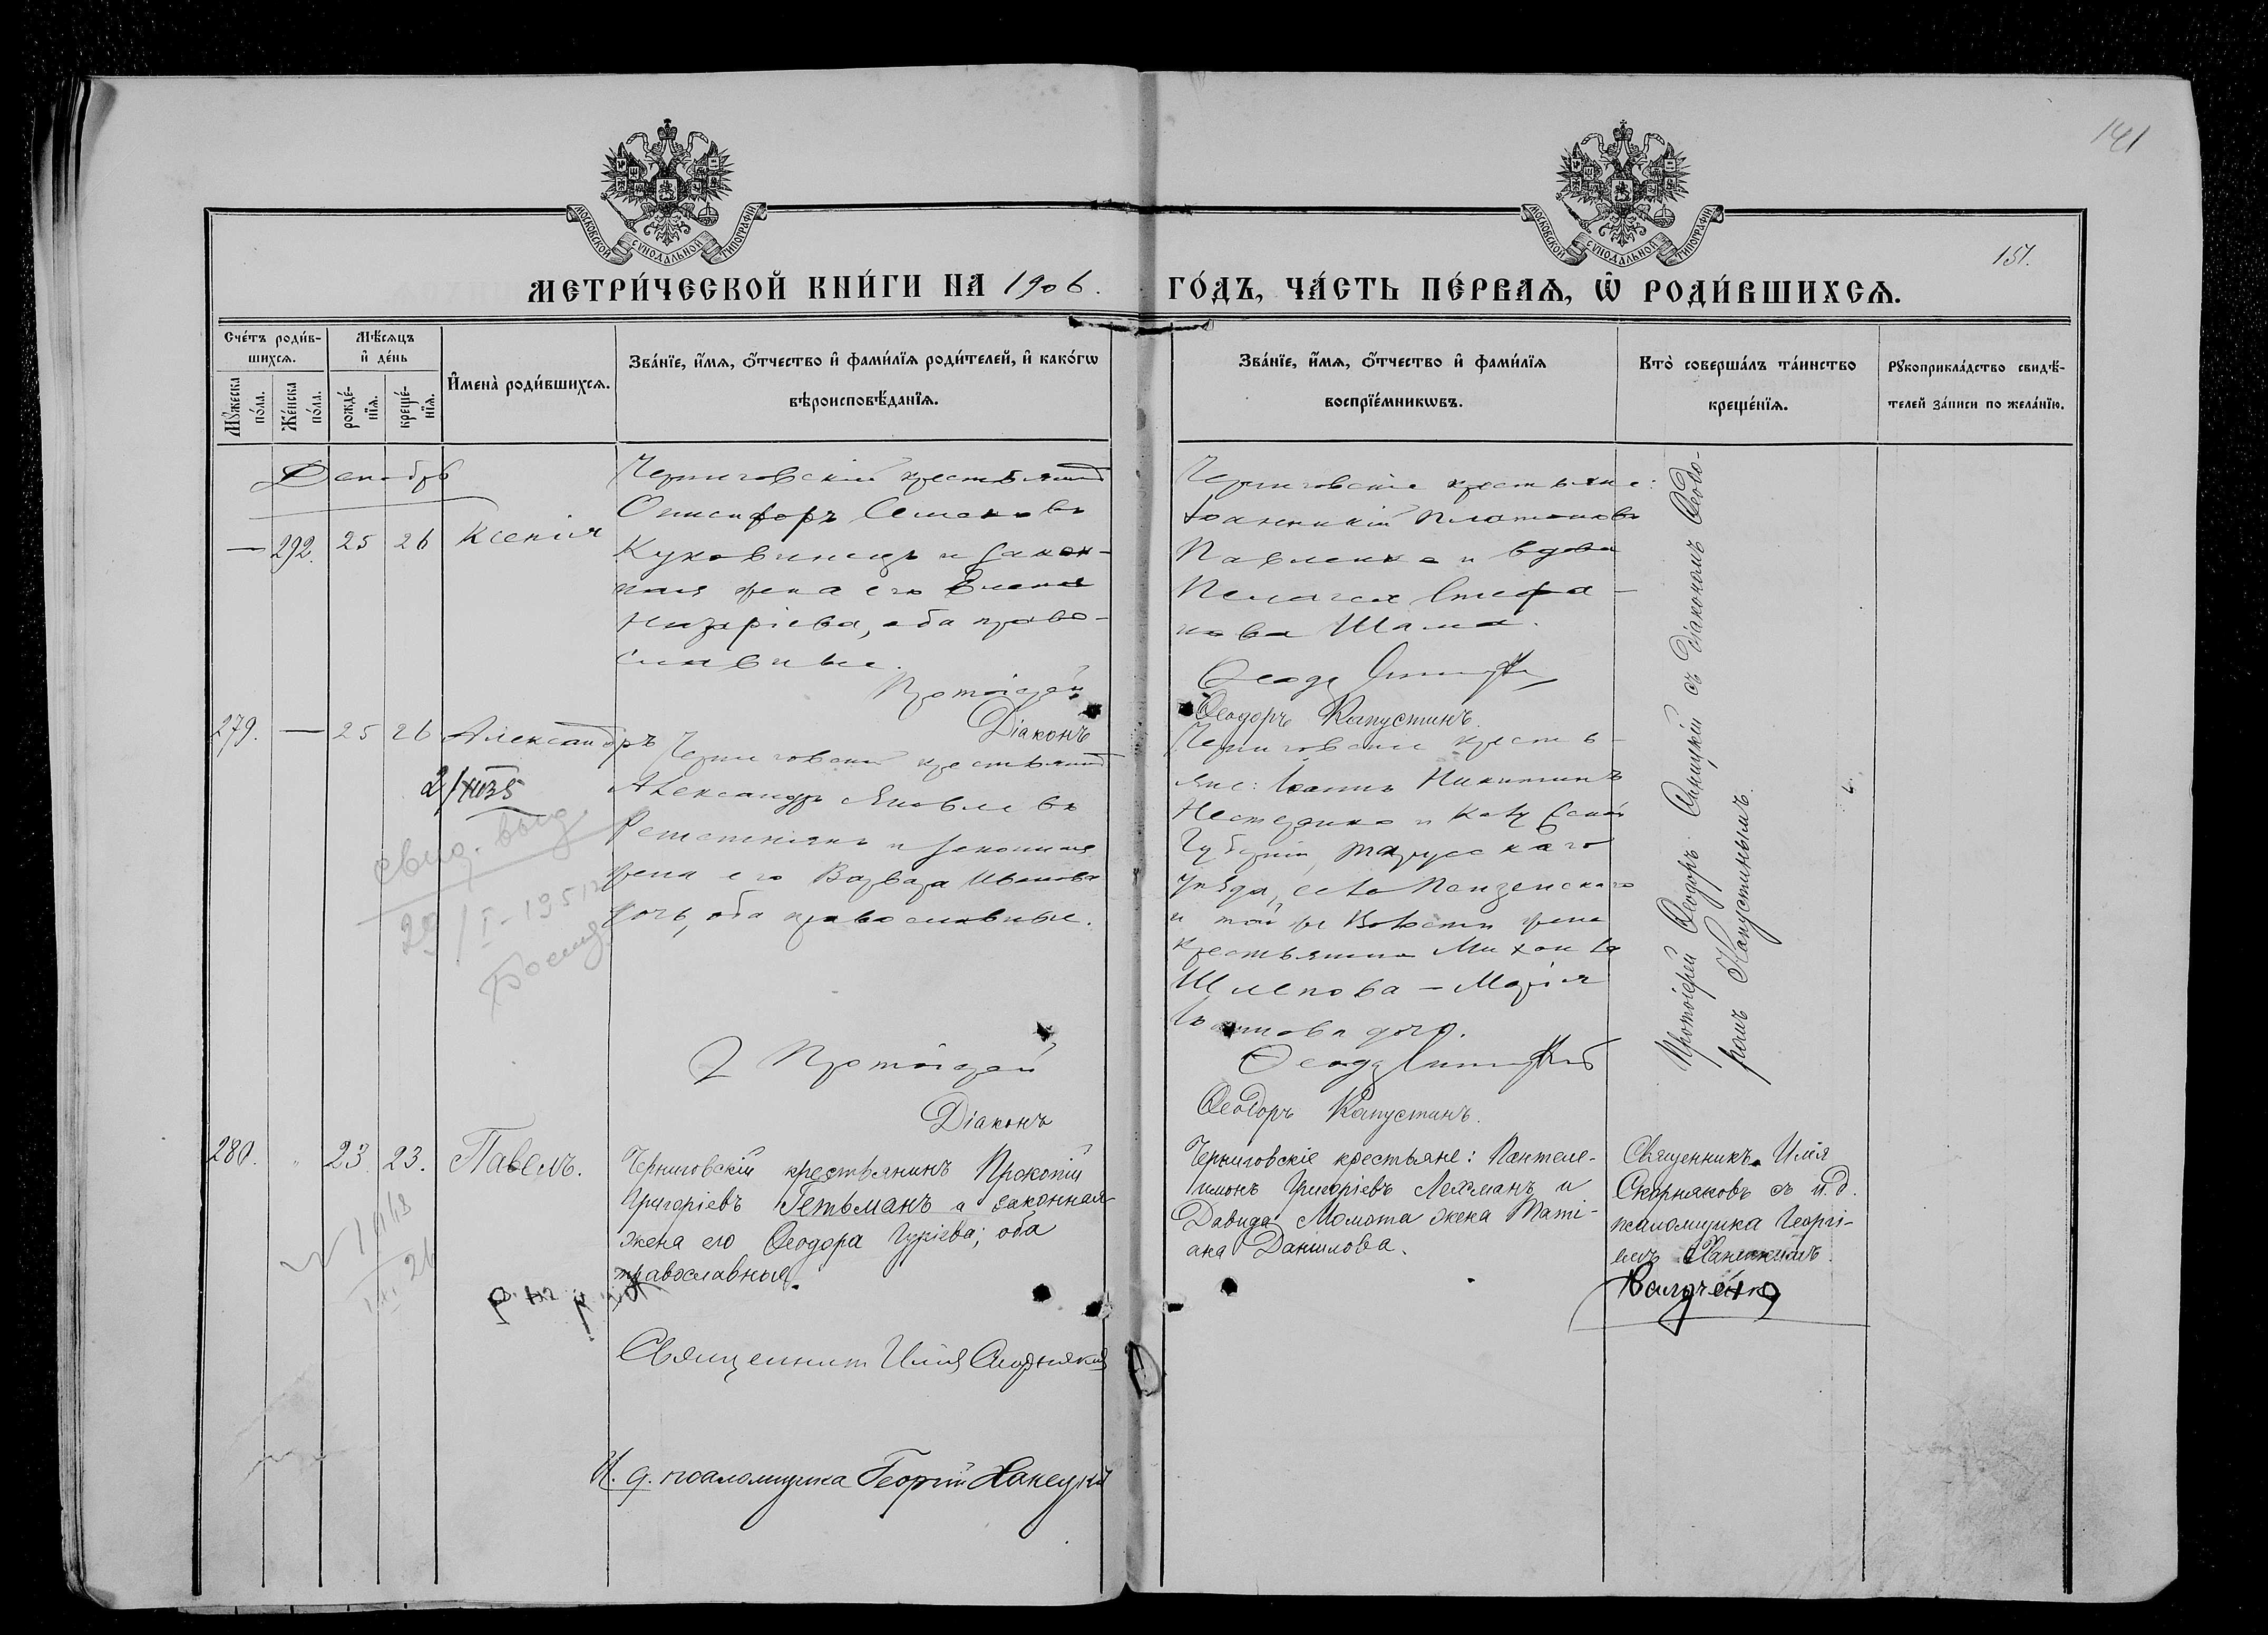 141
МОСКОВСКОЙ СѴНОДАЛЬНОЙ ТИПОГРАФІИ
МОСКОВСКОЙ СѴНОДАЛЬНОЙ ТИПОГРАФІИ
151.
МЕТРИ́ЧЕСКОЙ КНИ́ГИ НА 1906. ГО́ДЪ, ЧА́СТЬ ПЕ́РВАѦ, Ѡ҆ РОДИ́ВШИХСѦ.
Сче́тъ роди́в-
шихсѧ.
Мꙋ́жеска по́ла.
Же́нска по́ла.
Мѣ́сѧцъ
и҆ де́нь
рожде́-
нїѧ.
креще́-
нїѧ.
И҆мена̀ роди́вшихсѧ.
Зва́нїе, и҆́мѧ, ѻ҆́тчество и҆ фами́лїѧ роди́телей, и҆ како́гѡ
вѣроисповѣ́данїѧ.
Зва́нїе, и҆́мѧ, ѻ҆́тчество и҆ фами́лїѧ
воспрїе́мникѡвъ.
Кто̀ соверша́лъ та́инство
креще́нїѧ.
Рꙋкоприкла́дство свидѣ́-
телей за́писи по жела́нїю.
Декабрь
— 292. 25 26 Ксенія
Черниговскій крестьянинъ
Онисифоръ Семеновъ
Куковинецъ и закон-
ная жена его Елена
Назаріева, оба право-
славные.
Протоіерей
Діаконъ
Черниговскіе крестьяне:
Іоанникій Платоновъ
Павленко и вдова
Пелагея Стефа-
нова Шама.
Ѳеодоръ
Ѳеодоръ Капустинъ.
Протоіерей Ѳеодоръ с діакономъ Ѳеодо-
ромъ Капустинымъ.
279. — 25 26 Александръ
2/XII35
свид. выд
29/I-1951
Черниговскій крестьянинъ
Александръ Яковлевъ
и законная
жена его Варвара Иванова
дочь, оба православные.
Протоіерей
Діаконъ
Черниговскіе кресть-
яне: Іоаннъ Никитинъ
Нестеренко и
Губерніи, Тарусскаго
уѣзда, села Пензенскаго
и той же Волости жена
крестьянина Михаила
Щлепова — Марія
Іоаннова дочь.
Ѳеодоръ
Ѳеодоръ Капустинъ.
280. " 23. 23. Павелъ.
Черниговскій крестьянинъ Прокопій
Григоріевъ Гетьманъ и законная
жена его Ѳеодора Гуріева; оба
православныя.
Священникъ Илія Скорняковъ
И. д. псаломщика Георгій Ханецкій
Черниговскіе крестьяне: Пантеле-
имонъ Григоріевъ Лехманъ и
Давида Момота жена Таті-
ана Данилова.
Священникъ Илія
Скорняковъ съ и. д.
псаломщика Георгі-
емъ